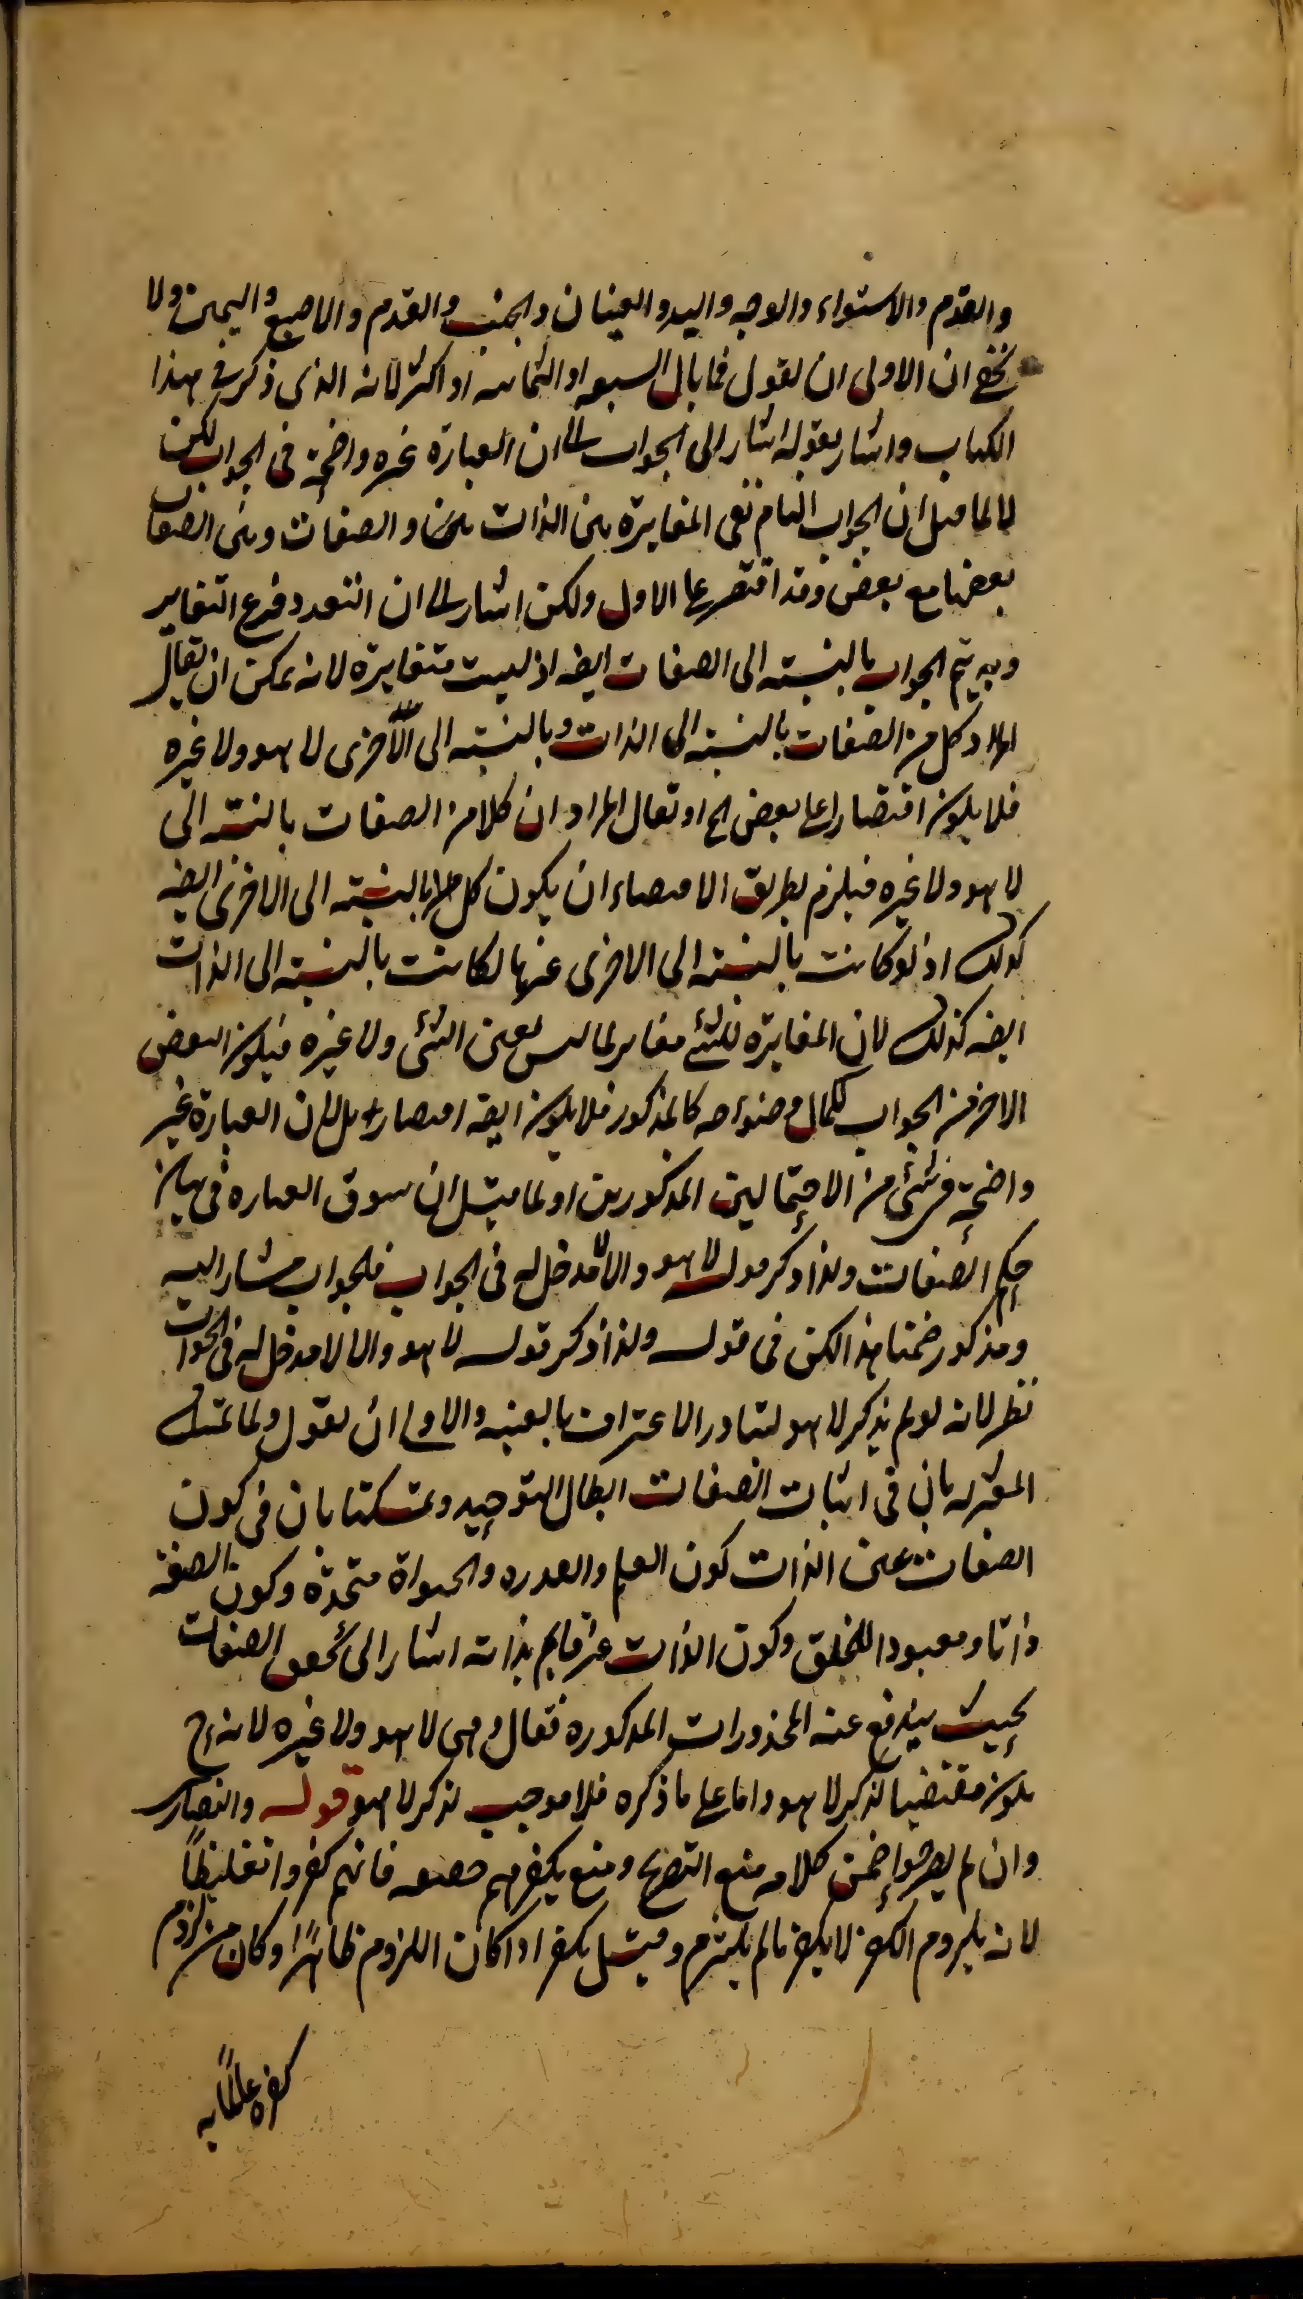 والقدم والاستواء والوجه واليد والعينان والجنب والقدم والاصبع واليمين ولا
يخفى ان الاولى ان يقول فما بال السبعه او الثمانيه او اكثر لانه الذى ذكر فى هذا
الكتاب واشار بقوله اشار الى الجواب الى ان العبارة غيره واضحة فى الجواب لكن
لا لما قيل ان الجواب التام نفى المغايرة بين الذات والصفات وبين الصفات
بعضها مع بعض وقد اقتصر على الاول ولكن اشار الى ان التعدد فرع التغاير
وبه يتم الجواب بالنسبته الى الصفات ايضه اذ ليست متغايرة لانه يمكن ان يقال
المراد كل من الصفات بالنسبته الى الذات وبالنسبته الى الاخرى لا هو ولا غيره
فلا يكون اقتصارا على بعض الخ او يقال المراد ان كلا من الصفات بالنسبته الى
لا هو ولا غيره فيلزم بطريق الاقتضاء ان يكون كل بالنسبته الى الاخرى ايضه
كذلك اذ لو كانت بالنسبته الى الاخرى غيرها لكانت بالنسبته الى الذات
ايضه كذلك لان المغايرة للشئ مغاير لما ليس بعين الشئ ولا غيره فيكون البعض
الاخر من الجواب كالمذكور فلا يكون ايضه اقتصارا بل لان العبارة غير
واضحة فى شئ من الاحتمالين المذكورين او لما قيل ان سوق العباره فى بيان
حكم الصفات ولذا ذكر قوله لا هو والا لا مدخل له فى الجواب فالجواب مشار اليه
ومذكور ضمنا هذا لكن فى قوله ولذا ذكر قوله لا هو والا لا مدخل له فى الجواب
نظر لانه لو لم يذكر لا هو لتبادر الاعتراف بالعينيه والاولى ان يقول ولما تمسك
المعتزله بان فى اثبات الصفات ابطال التوحيد وتمسكنا بان فى كون
الصفات عين الذات كون العلم والقدره والحيواة متحدة وكون الصفة
ذاتا ومعبودا للخلق وكون الذات غير قايم بذاته اشار الى تحقيق الصفات
بحيث يندفع عنه المحذورات المذكوره فقال وهى لا هو ولا غيره لانه ح
يكون مقتضيا لذكر لا هو واما على ما ذكره فلا موجب لذكر لا هو قوله والنصارى
وان لم يصرحوا ضمن كلامه منع التصريح ومنع تكفيرهم حقيقه فانهم كفروا تغليظاً
لانه بلزوم الكفر لا يكفر ما لم يلتزم وقيل يكفر اذا كان اللزوم ظاهرًا وكان من لزوم
كفره